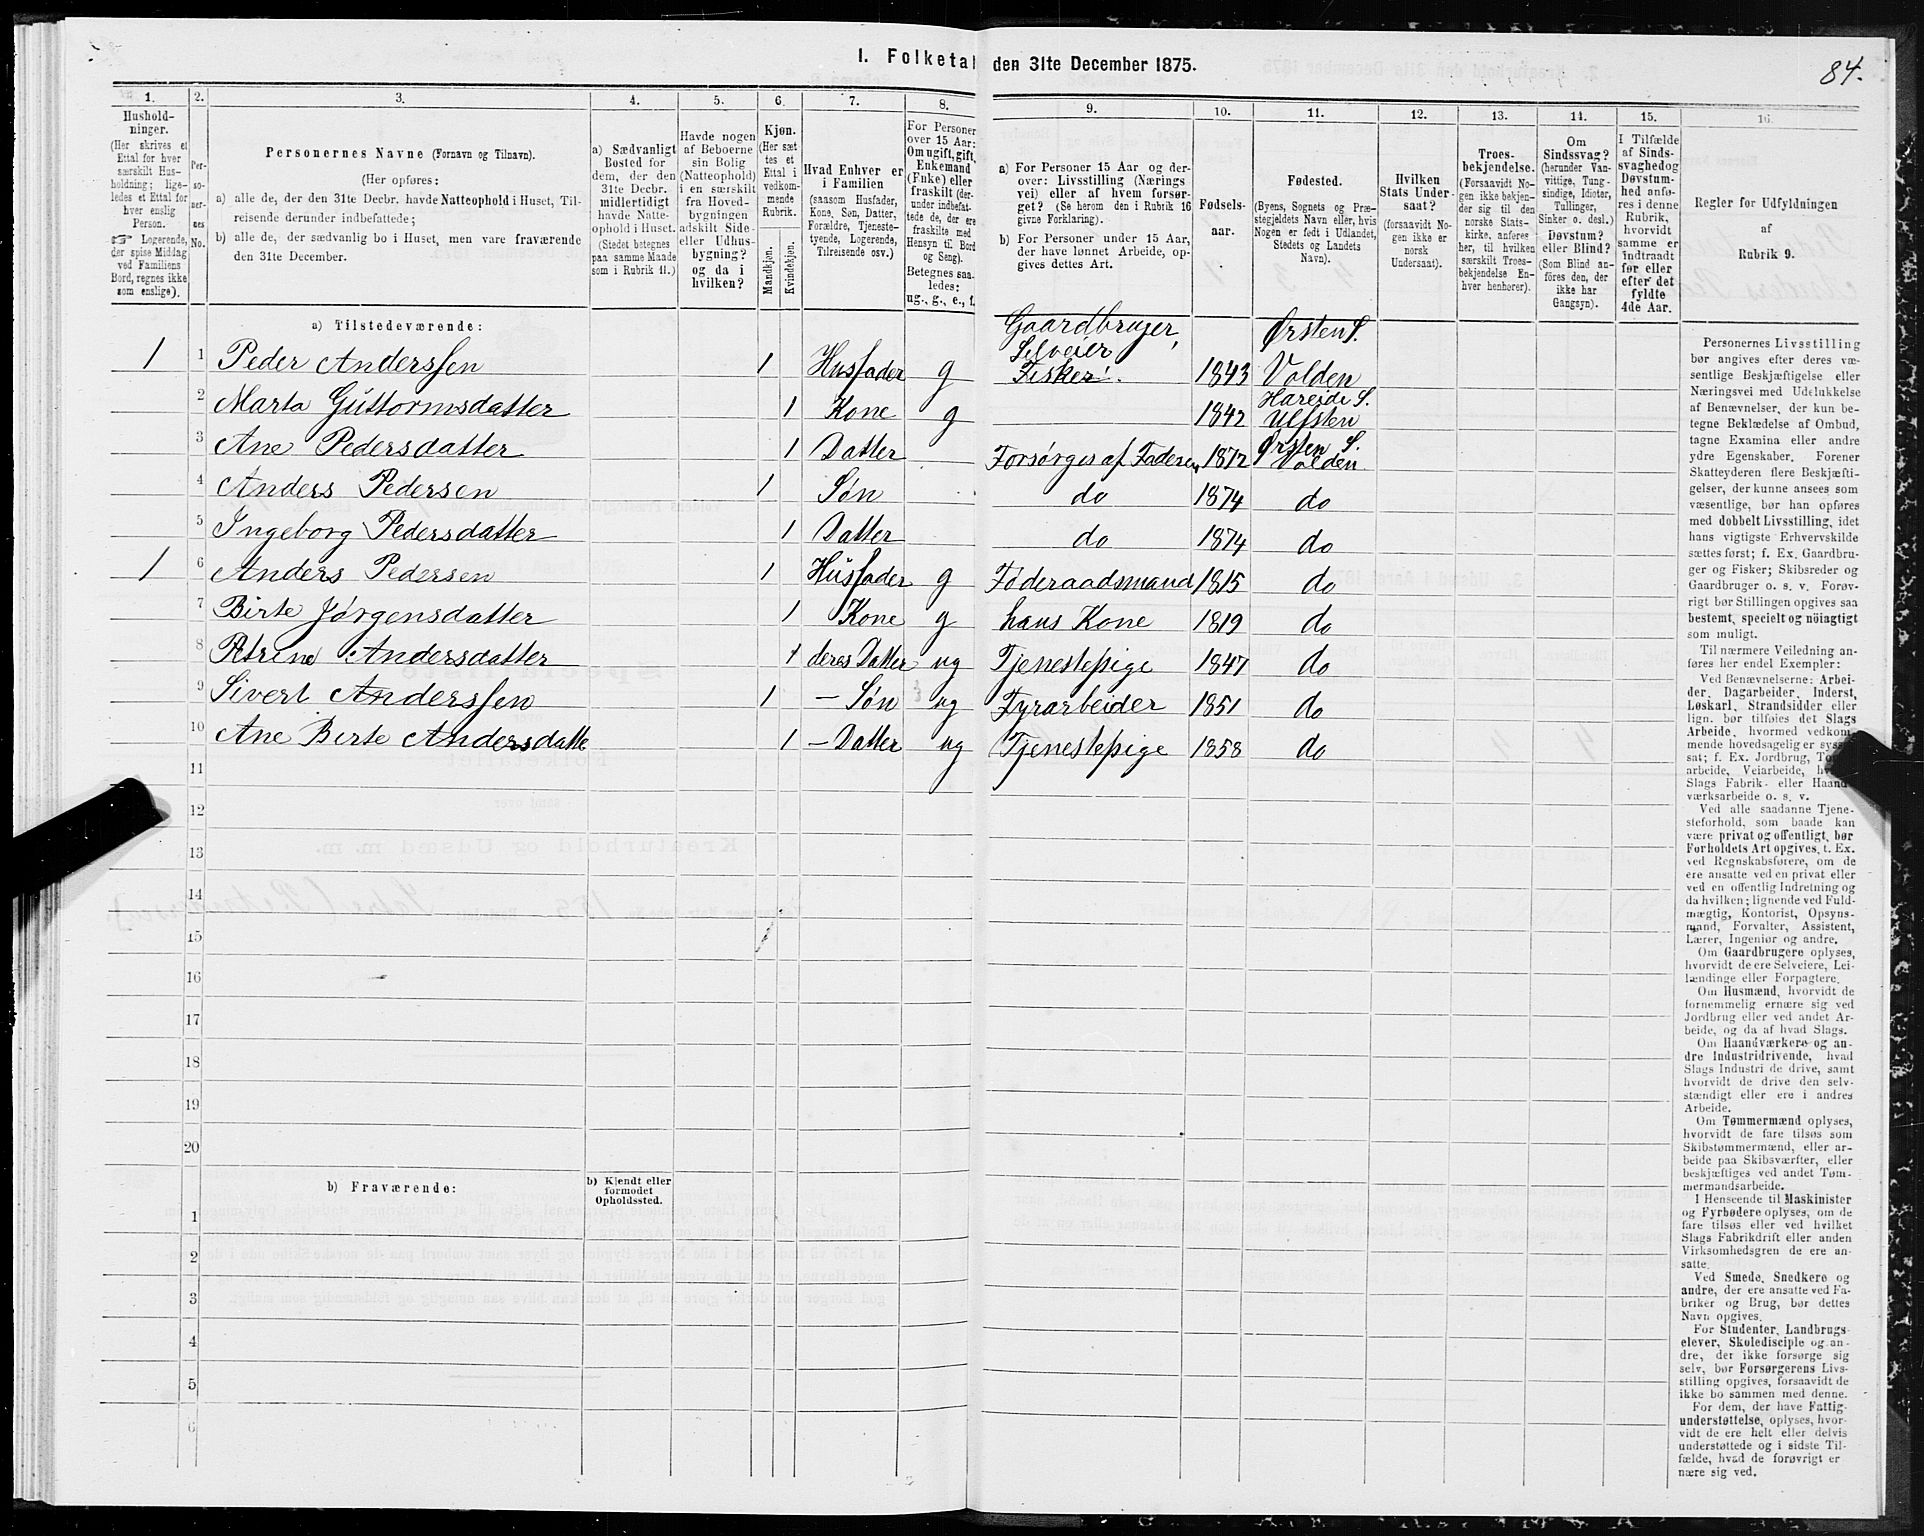 I. Folketal den 31te December 1875.
84.
1.
2.
3.
4.
5.
6.
7.
8.
9.
10.
11.
12.
13.
14.
15.
16.
Hushold-
ninger.
(Her skrives et
Ettal for hver
særskilt Hus-
holdning; lige-
ledes et Ettal for
hver enslig
Person.
☞ Logerende,
der spise Middag
ved Familiens
Bord, regnes ikke
som enslige).
Per-
so-
ner-
nes
No.
Personernes Navne (Fornavn og Tilnavn).
(Her opføres:
a) alle de, der den 31te Decbr. havde Natteophold i Huset, Til-
reisende derunder indbefattede;
b) alle de, der sædvanlig bo i Huset, men vare fraværende
den 31te December.
a) Sædvanligt
Bosted for
dem, der den
31te Decbr.
midlertidigt
havde Natte-
ophold i Huset.
(Stedet betegnes
paa samme Maade
som i Rubrik 11.)
Havde nogen
af Beboerne
sin Bolig
(Natteophold)
i en særskilt
fra Hoved-
bygningen
adskilt Side-
eller Udhus-
bygning?
og da i
hvilken?
Kjøn.
(Her sæt
tes et
Ettal i
vedkom-
mende
Rubrik.
Mandkjøn.
Kvindekjøn.
Hvad Enhver er
i Familien
(saasom Husfader,
Kone, Søn, Datter,
Forældre, Tjeneste-
tyende, Logerende,
Tilreisende osv.)
For Personer
over 15 Aar:
Om ugift, gift,
Enkemand
(Enke) eller
fraskilt (der-
under indbefat-
tede de, der ere
fraskilte med
Hensyn til Bord
og Seng).
Betegnes saa-
ledes:
ug., g., e., f.
a) For Personer 15 Aar og der-
over: Livsstilling (Nærings
vei) eller af hvem forsør-
get? (Se herom den i Rubrik 16
givne Forklaring).
b) For Personer under 15 Aar,
der have lønnet Arbeide, op-
gives dettes Art.
Fødsels-
aar.
Fødested.
(Byens, Sognets og Præ-
stegjeldets Navn eller, hvis
Nogen er født i Udlandet,
Stedets og Landets
Navn).
Hvilken
Stats Under-
saat?
(forsaavidt No-
gen ikke er
norsk
Undersaat).
Troes-
bekjendelse.
(Forsaavidt No-
gen ikke bekjen-
der sig til den
norske Stats-
kirke, anføres
her, til hvilken
særskilt Troes-
bekjendelse En-
hver henhører).
Om
Sindssvag?
(herunder Van-
vittige, Tung-
sindige, Idioter,
Tullinger,
Sinker o. desl.)
Døvstum?
eller Blind?
(Som Blind an-
føres den, der
ikke har
Gangsyn).
I Tilfælde
af Sinds-
svaghed og
Døvstum-
hed anfø-
res i denne
Rubrik,
hvorvidt
samme er
indtraadt
før eller
efter det
fyldte
4de Aar.
Regler for Udfyldningen
af
Rubrik 9.
a) Tilstedeværende:
Gaardbruger, Ørsten S.
Selveier
1 1 Peder Anderssen 1 Husfader g Fisker. 1843 Volden
Hareide S.
2 Marta Guttormsdatter 1 Kone g 1842 Ulfsten
Ørsten S.
3 Ane Pedersdatter 1 Datter Forsørges af Faderen 1872 Volden
4 Anders Pedersen 1 Søn do 1874 do
5 Ingeborg Pedersdatter 1 Datter do 1874 do
1 6 Anders Pedersen 1 Husfader g Føderaadsmand 1815 do
7 Birte Jørgensdatter 1 Kone g hans Kone 1819 do
8 Petrine Andersdatter 1 deres Datter ug Tjenestepige 1847 do
9 Sivert Anderssen 1 — Søn ug Fyrarbeider 1851 do
10 Ane Birte Andersdatte 1 — Datter ug Tjenestepige 1858 do
11
12
13
14
15
16
17
18
19
20
b) Fraværende:
b) Kjendt eller
formodet
Opholdssted.
1
2
3
4
5
6
Personernes Livsstilling
bør angives efter deres væ-
sentlige Beskjæftigelse eller
Næringsvei med Udelukkelse
af Benævnelser, der kun be-
tegne Beklædelse af Ombud,
tagne Examina eller andre
ydre Egenskaber. Forener
Skatteyderen flere Beskjæfti-
gelser, der kunne ansees som
væsentlige, bør han opføres
med dobbelt Livsstilling, idet
hans vigtigste Erhvervskilde
sættes først; f. Ex. Gaardbru-
ger og Fisker; Skibsreder og
Gaardbruger o. s. v. Forøv-
rigt bør Stillingen opgives saa
bestemt, specielt og nöiagtigt
som muligt.
Til nærmere Veiledning an-
føres her endel Exempler:
Ved Benævnelserne: Arbei-
der, Dagarbeider, Inderst,
Løskarl, Strandsidder eller
lign. bør tilføies det Slags
Arbeide, hvormed vedkom-
mende hovedsagelig er syssel-
sat; f. Ex. Jordbrug,
arbeide, Veiarbeide,
Slags Fabrik- eller Haand-
værksarbeide o. s. v.
Ved alle saadanne Tjene-
steforhold, som baade kan
være privat og offentligt, bør
Forholdets Art opgives, t. Ex.
ved Regnskabsførere, om de
ere ansatte ved en privat eller
ved en offentlig Indretning og
da hvilken; lignende ved Fuld-
mægtig, Kontorist, Opsyns-
mand, Forvalter, Assistent,
Lærer, Ingeniør og andre.
Om Gaardbrugere oplyses,
hvorvidt de ere Selveiere, Lei-
lændinge eller Forpagtere.
Om Husmænd, hvorvidt de
fornemmelig ernære sig ved
Jordbrug eller ved andet Ar-
beide, og da af hvad Slags.
Om Haandværkere og an-
dre Industridrivende, hvad
Slags Industri de drive, samt
hvorvidt de drive den selv-
stændigt eller ere i andres
Arbeide.
Om Tømmermænd oplyses,
hvorvidt de fare tilsøs som
Skibstømmermænd, eller ar-
beide paa Skibsværfter, eller
beskjæftiges ved andet Tøm-
mermandsarbeide.
I Henseende til Maskinister
og Fyrbødere oplyses, om de
fare tilsøs eller ved hvilket
Slags Fabrikdrift eller anden
Virksomhedsgren de ere an-
satte.
Ved Smede, Snedkere og
andre, der ere ansatte ved Fa-
briker og Brug, bør dettes
Navn opgives.
For Studenter, Landbrugs-
elever, Skoledisciple og an-
dre, der ikke forsørge sig
selv, bør Forsørgerens Livs-
stilling opgives, forsaavidt de
ikke bo sammen med denne.
For dem, der have Fattig-
understøttelse, oplyses, hvor-
vidt de ere helt eller delvis
understøttede og i sidste Til-
fælde, hvad de forøvrigt er
nære sig ved.